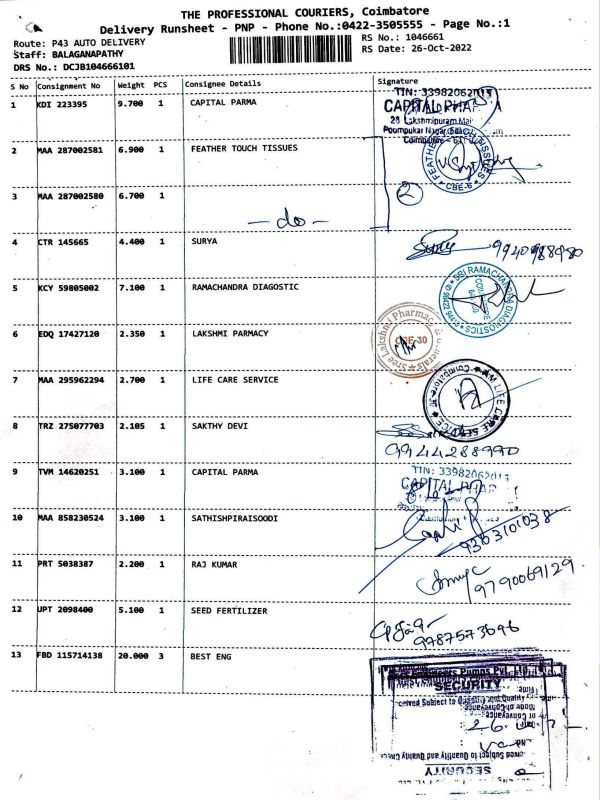 THE PROFESSIONAL COURIERS, Coimbatore
Delivery Runsheet - PNP - Phone No.:0422-3505555 - Page No.:1
Route: P43 AUTO DELIVERY
RS No.: 1046661
Staff: BALAGANAPATHY
RS Date: 26-Oct-2022
DRS No.: DCJB104666101
S No Consignment No Weight PCS Consignee Details Signature
1 KDI 223395 9.700 1 CAPITAL PARMA
TIN: 33982062013
CAPITAL PHAR
28 Lakshmipuram Mai
2 MAA 287002581 6.900 1 FEATHER TOUCH TISSUES
FEATHER TISSUES
CBE-6
3 MAA 287002580 6.700 1
2
- do -
4 CTR 145665 4.400 1 SURYA
9940988980
5 KCY 59805002 7.100 1 RAMACHANDRA DIAGOSTIC
SRI RAMACHANDRA DIAGNOSTICS
6 EDQ 17427120 2.350 1 LAKSHMI PARMACY
Sree Lakshmi Pharmacy
CBE-30
7 MAA 295962294 2.700 1 LIFE CARE SERVICE
LIFE CARE SERVICE
8 TRZ 275077703 2.105 1 SAKTHY DEVI
9944288990
9 TVM 14620251 3.100 1 CAPITAL PARMA
TIN: 33982062013
CAPITAL PHAR
10 MAA 858230524 3.100 1 SATHISHPIRAISOODI
9363101038
11 PRT 5038387 2.200 1 RAJ KUMAR
9790069129
12 UPT 2098400 5.100 1 SEED FERTILIZER
9787573696
13 FBD 115714138 20.000 3 BEST ENG
Pumps Pvt. Ltd.
SECURITY
Mode of Conveyance
Subject to Quantity and Quality Check
SECURITY